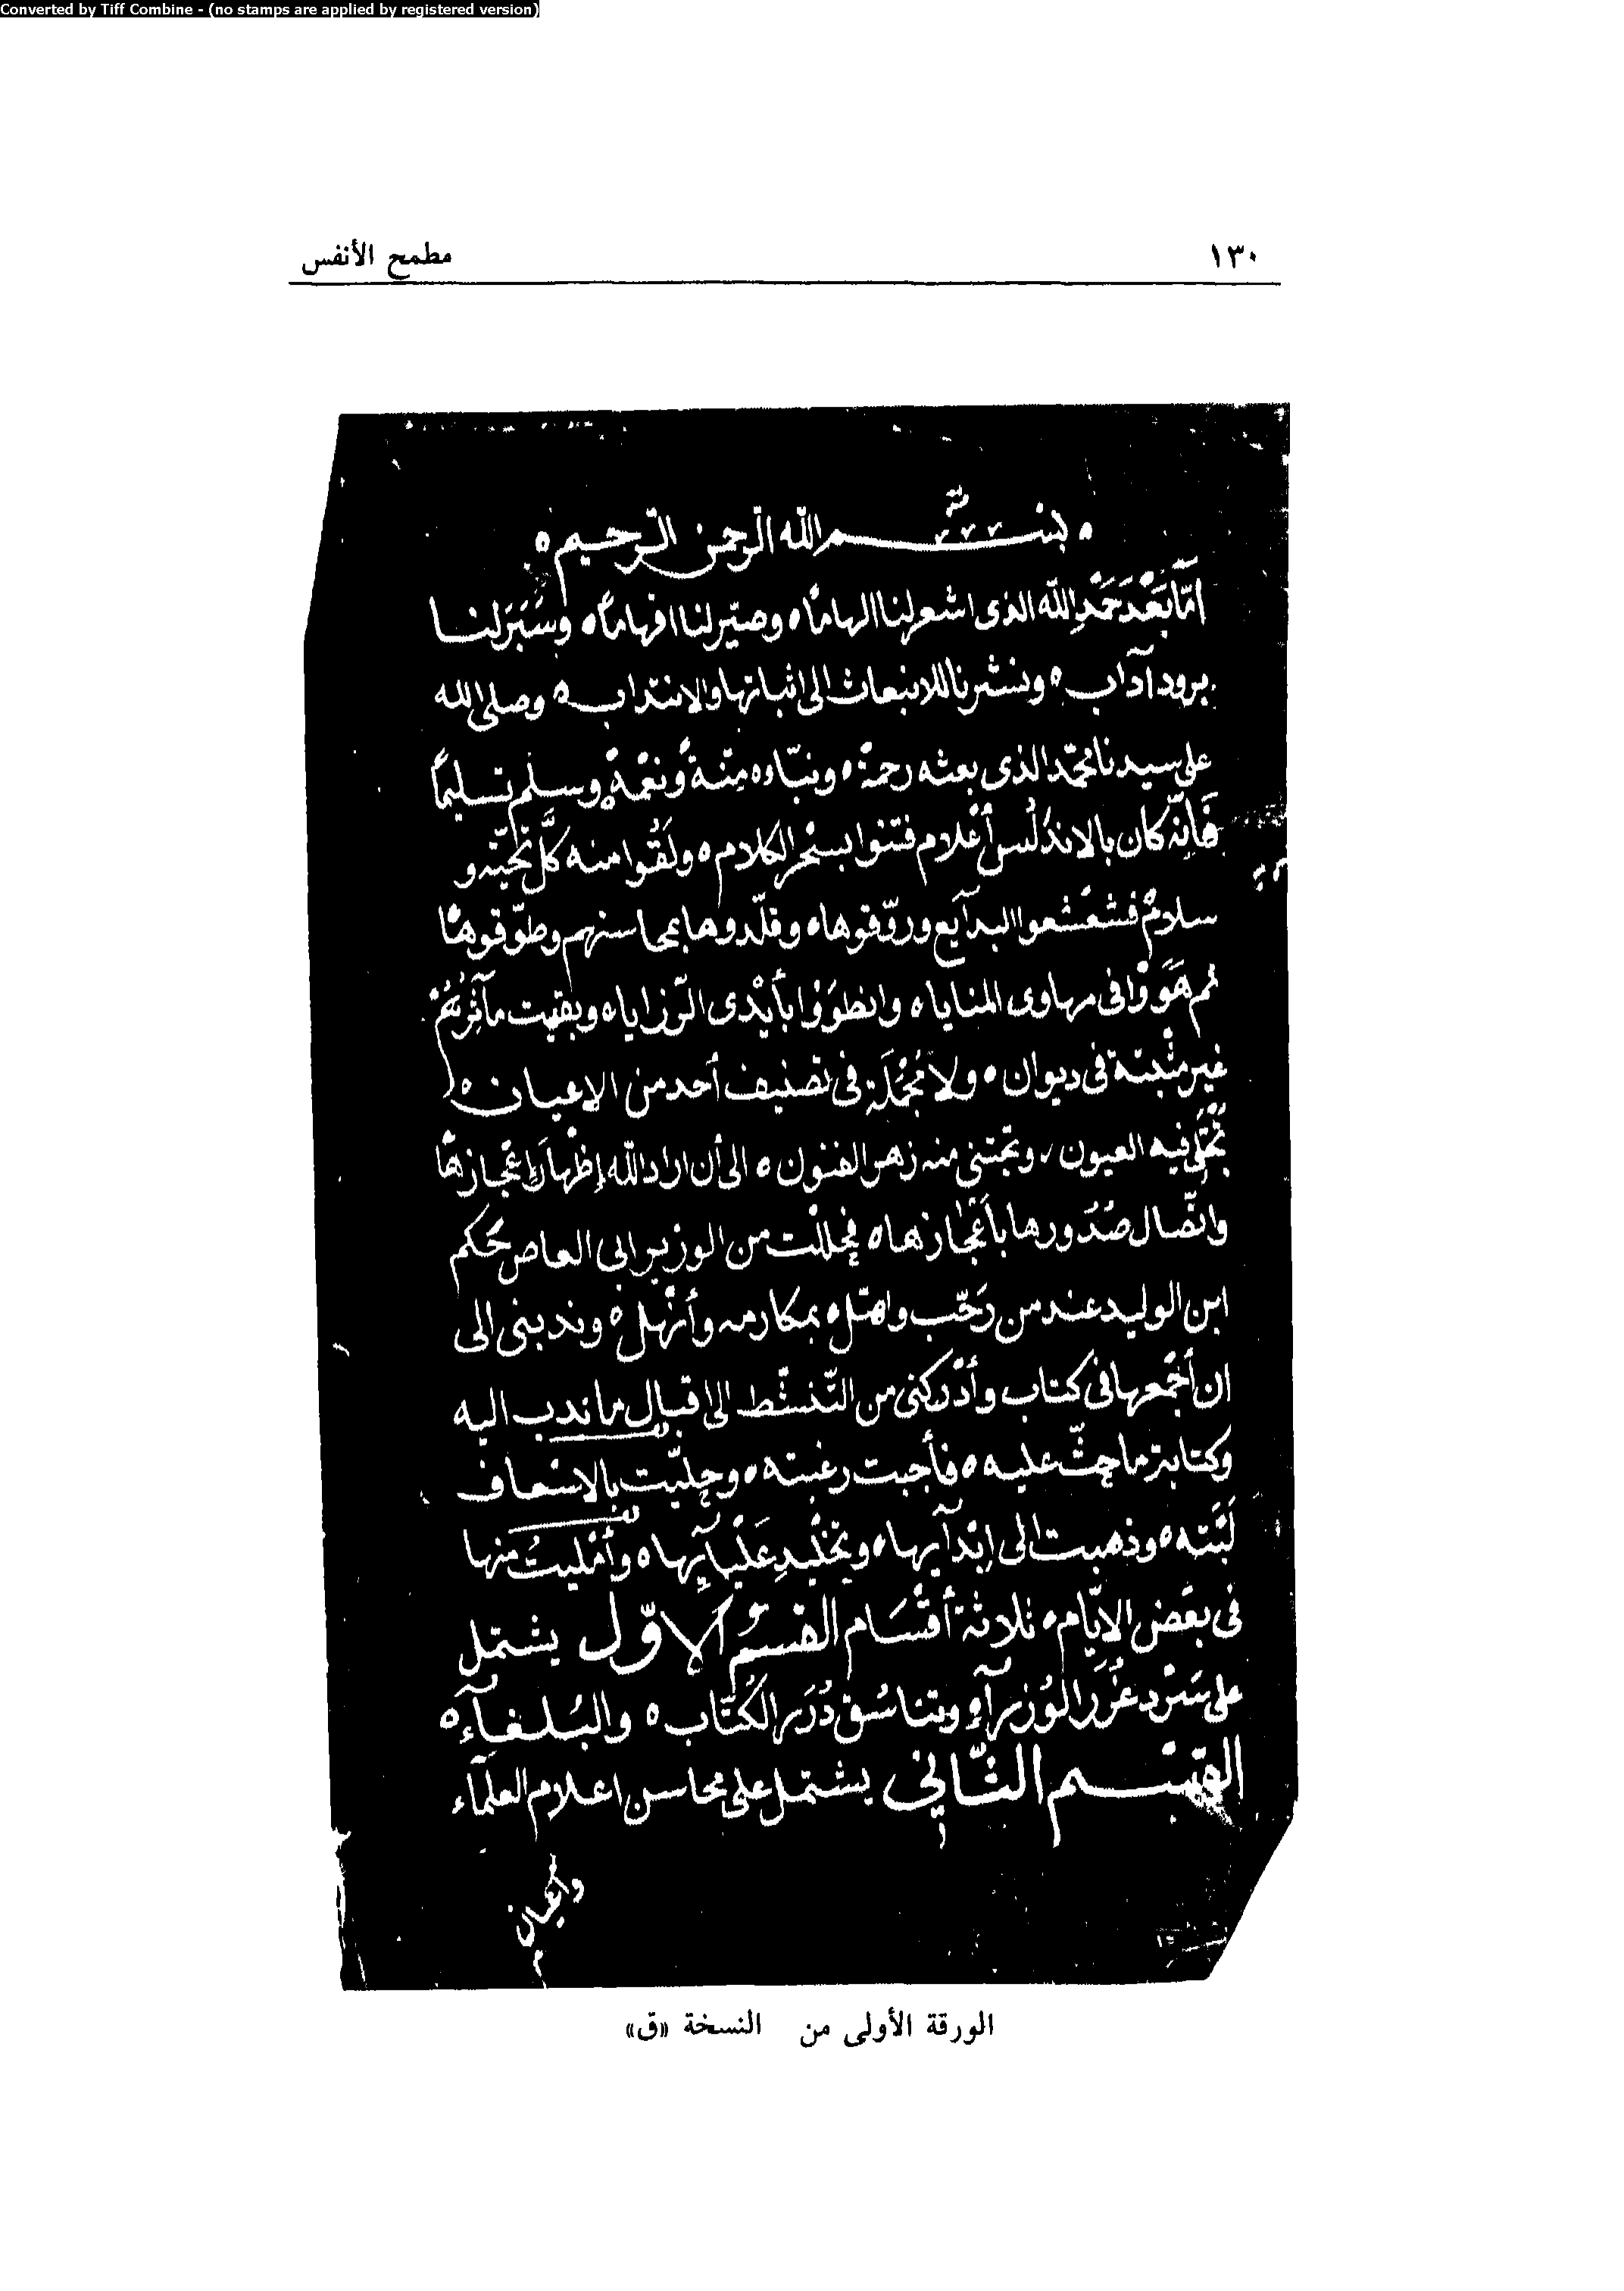 Converted by Tiff Combine - (no stamps are applied by registered version)
١٣٠ مطمح الأنفس
بسم الله الرحمن الرحيم ه
أمّا بَعْدَ حَمْدِ الله الذى اشعرلنا الهامًا ه وصيّرلنا افهامًا ه وسَيَّرَ لنا
برود آداب ه ونشرنا للانبعاث الى اثباتها والانتداب ه وصلى الله
على سيدنا محمّد الذى بعثه رحمة ه ونبّاه مِنّةً ونعْمةً ه وسلّم تسليمًا
فَإنّه كان بالاندلُس أعْلام فتنوا بسحْر الكلام ه ولَقُوا منه كلَّ تحيّة و
سلامٌ فشعْشعوا البدآيع وروّقوها ه وقلّدوها بمحاسنهم وطوّقوها
ثم هَوَوْا فى مهاوى المنايا ه وانطوَوْا بأيْدى الرّزايا ه وبقيت مآثِرهُمْ
غير مثْبتة فى ديوان ه ولا مُجْمَلةٍ فى تصنيف أحد من الاعيان ه
تجْتلى فيه العيون، وتجتنى منه زهر الفنون ه الى أن اراد الله إظْهارَ إعْجازها
واتّصال صُدُورها بأعْجازها ه فحللْت من الوزير ابى العاص حَكم
ابن الوليد عند من رَحّب واهّل ه بمكارمه وأنْهل ه وندبنى الى
ان أجْمعها فى كتاب وأدْركنى من التّنشّط الى اقبال ما ندب اليه
وكتابة ما حثّ عليه ه فأجبت رغبته ه وحلّيت بالاسْعاف
لَبّته ه وذهبت الى إبْدآيها ه وتخْليدِ عَلْيآيِها ه وأمْليتُ منها
فى بعْض الايّام ه ثلاثة أقْسَام القسمُ الاوّل يشتمل
على سَرْد غُرَر الوُزرآءِ وتناسُق دُرَر الكُتّاب ه والبُلغآء ه
القِسْم الثّاني يشتمل على محاسن اعلام العلمآء
والاعيان
الورقة الأولى من النسخة «ق»